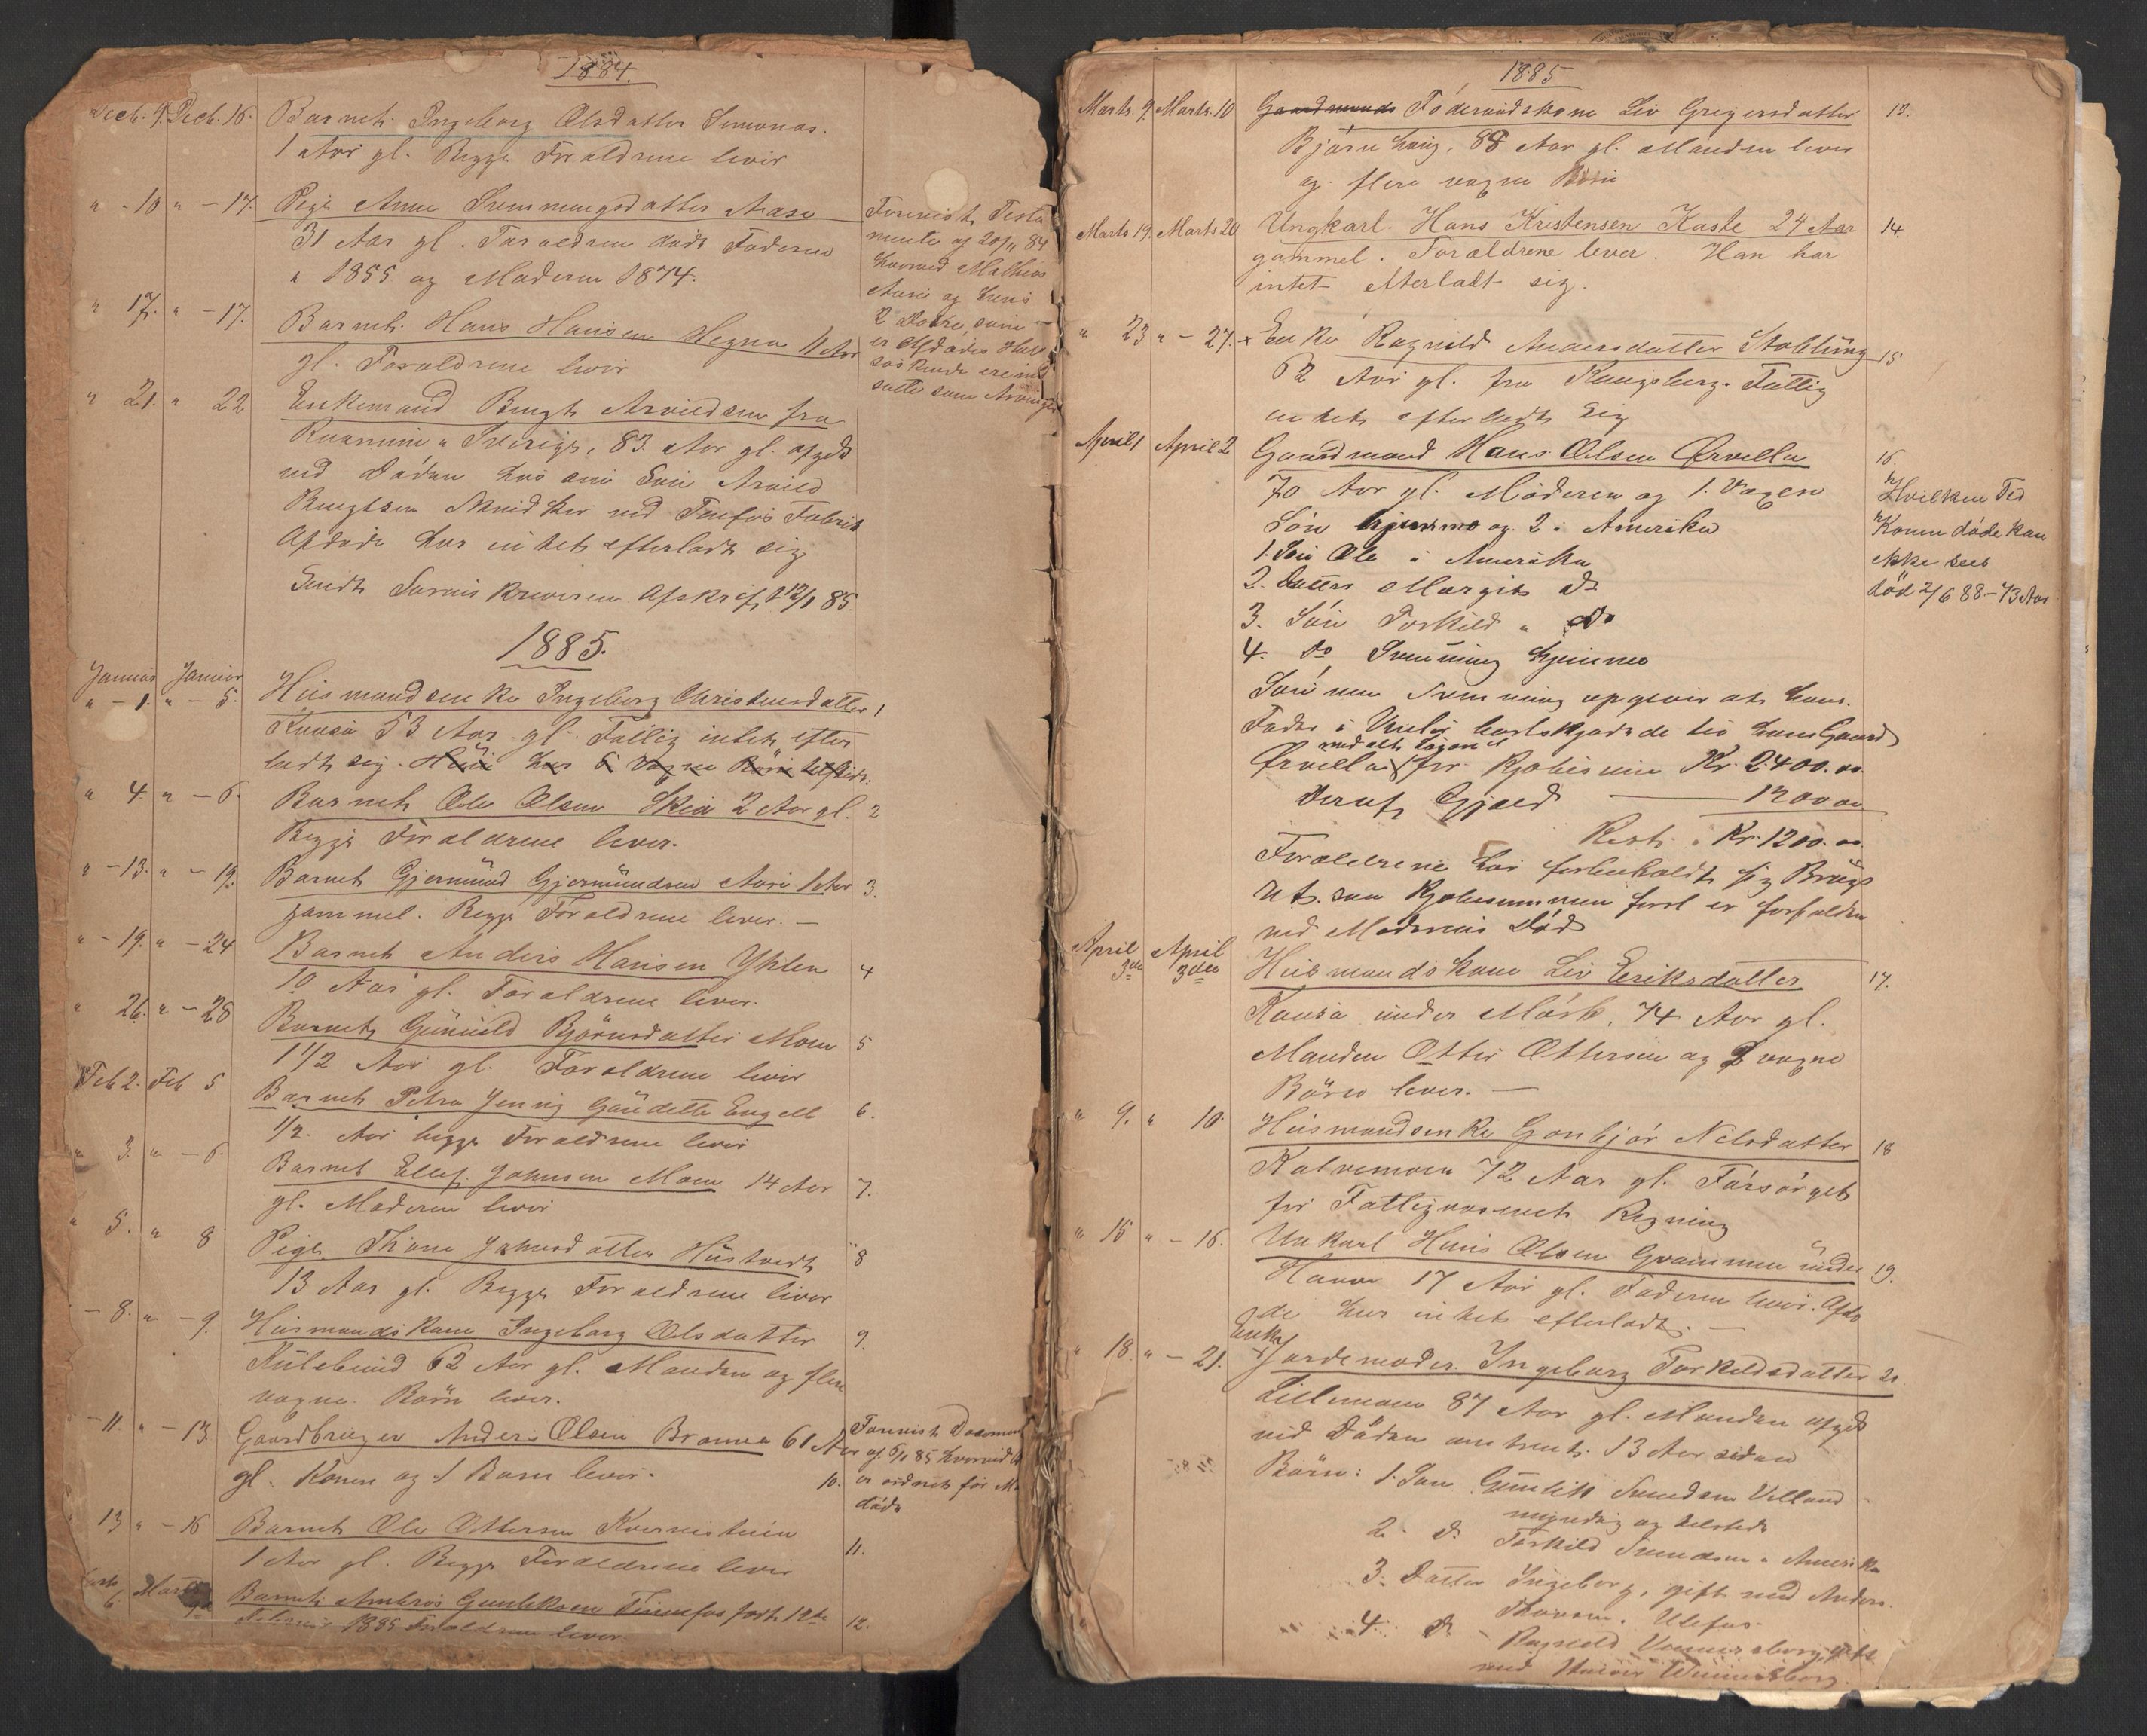 1884.
Decb. 9. Decb. 16. Barnet Ingeborg Olsdatter Semonas.
1 Aar gl. Begge Forældrene lever
" - 10 " - 17. Pige Anne Svenningsdatter Aase
31 Aar gl. Forældrene døde Faderen
i 1855 og Moderen 1874.
Forevist Testa
mente af 20/11 84
hvorved Mathias
Aase og hans
2 Døtre, som
er Afdødes Halv
søskende ere ind
satte som Arvinger
" 17. " - 17. Barnet Hans Hansen Hegna 11 Aar
gl. Forældrene lever
" 21. " 22 Enkemand Bengt Arvildsen fra
i Sverige, 83 Aar gl. afgik
ved Døden hos sin Søn Arvild
Bengtsen ved Tinfos Fabrik
Afdøde har intet efterladt sig
Sendt Sorenskriveren Afskrift 12/1 85.
1885.
Januar Januar
" - 1. " - 5. Husmandsenke Ingeborg Christensdatter 1
53 Aar gl. Fattig intet efter
ladt sig. Hun har 6 vogsne Børn
" 4. " - 6. Barnet Ole Olsen Skeie 2 Aar gl. 2
Begge Forældrene lever.
" - 13. " - 19. Barnet Gjermund Gjermundsen Aase 1 Aar 3.
gammel. Begge Forældrene lever. —
" - 19. " - 24 Barnet Anders Hansen Yhlen 4
10 Aar gl. Forældrene lever.
" 26. " - 28 Barnet Gunild Bjørnsdatter Moen 5
1 1/2 Aar gl. Forældrene lever
Feb 2. Feb 5 Barnet Petra Jenny 6.
1/2 Aar begge Forældrene lever
" 3. " - 6. Barnet Ellef Johnsen Moen 14 Aar 7.
gl. Moderen lever
" 5. " 8 Pige Thone Johnsdatter Hustvedt 8
13 Aar gl. Begge Forældrene lever
- 8. " - 9. Husmandskone Ingeborg Olsdatter 9.
62 Aar gl. Manden og flere
vogne Børn lever.
- 11. " - 13. Gaardbruger Anders Olsen 61 Aar
gl. Konen og 1 Barn lever. 10.
Forevist
af 5/1 85 hvorved
er ordnet for
døde
13 " - 16 Barnet Ole Ottersen 11.
1 Aar gl. Begge Forældrene lever
6 Marts Barnet Ambros Gunleksen Tinnefos født 12te 12.
1885 Forældrene lever.
1885
Marts 9. Marts 10 Gaardmands Føderaadskone Liv Gregersdatter 13.
Bjørnhaug, 88 Aar gl. Manden lever
og flere vogne Børn
Marts 19. Marts 20 Ungkarl Hans Kristensen Kaste 24 Aar 14.
gammel. Forældrene lever. Han har
intet efterladt sig.
" 23 " - 27. x Enke Ragnild Andersdatter Stablung 15
62 Aar gl. fra Kongsberg. Fattig
intet efterladt sig
April 1 April 2 Gaardmand Hans Olsen Ørvella 16
70 Aar gl. Moderen og 1. vogen
Søn hjemme og 2 i Amerika
Hvilken Tid
Konen døde kan
ikke sees
død 2/6 88 - 73 Aar
1. Søn Ole i Amerika
2. Datter Margit Do
3. Søn Torkild " Do
4. Do Svenning hjemme
Sønnen Svenning opgiver at hans
Fader i Live bortskjødede til ham Gaard
Ørvella med alt Løsøre for Kjøbesum Kr 2400.00
Deraf Gjæld — 1200 00
Rest Kr. 1200.00
Forældrene har forbeholdt sig Brug
saa Kjøbesummen først er forfalden
ved Moderens Død
April 3de April 3die Husmandskone Liv Eriksdatter 17.
Kaasa under Mørk, 74 Aar gl.
Manden Otter Ottersen og 2 vogne
Børn lever. —
" 9. " 10. Husmandsenke Gonbjør Nilsdatter 18
Kalvemoen 72 Aar gl. Forsørget
for Fattigvæsenets Regning
" 15 " - 16. Unkarl Hans Olsen Grommen under 19.
17 Aar gl. Faderen lever. Afdø
de har intet efterladt. —
" 18. " - 21. Enke Jordemoder Ingeborg Torkildsdatter 20
Lillemoen 87 Aar gl. Manden afgik
ved Døden omtrent 13 Aar siden
Børn: 1. Søn Gunlik Svendsen Velland
myndig og tilstede
2. Do Torkild Svendsen i Amerika
3. Datter Ingeborg, gift med Anders
Ulefos
4. Do Ragnild Wennersborg, gift
med Halvor Wennersborg